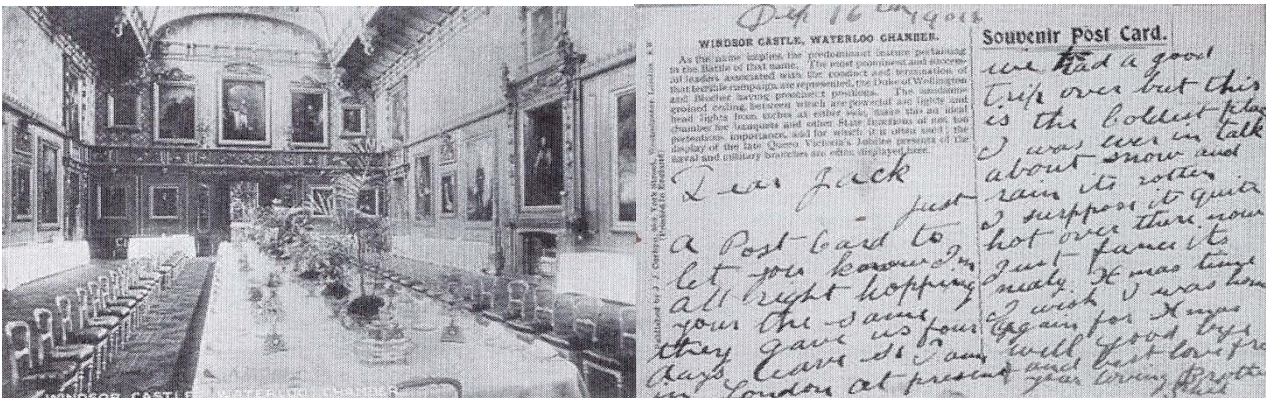 WINDSOR CASTLE, WATERLOO CHAMBER
Dec 16th
WINDSOR CASTLE, WATERLOO CHAMBER.
As the name implies, the predominant feature pertaining
to the Battle of that name. The most prominent and success-
ful leaders associated with the conduct and termination of
that terrible campaign, are represented, the Duke of Wellington
and Blucher having prominent positions. The handsome
groined ceiling, between which are powerful arc lights and
head lights from arches at either side, make this an ideal
chamber for banquets and other State functions of not too
portentous importance, and for which it is often used; the
display of the late Queen Victoria's Jubilee presents of the
naval and military branches are often displayed here.
Dear Jack
just
a Post Card to
let you know I'm
all right hopping
your the same
they gave us four
days leave so I am
in London at present
Souvenir Post Card.
we had a good
trip over but this
is the coldest place
I was ever in talk
about snow and
rain its rotten
I suppose it quite
hot over there now
Just fancy its
nealy Xmas time
I wish I was home
again for Xmas
well good bye
and best love from
your loving Brother